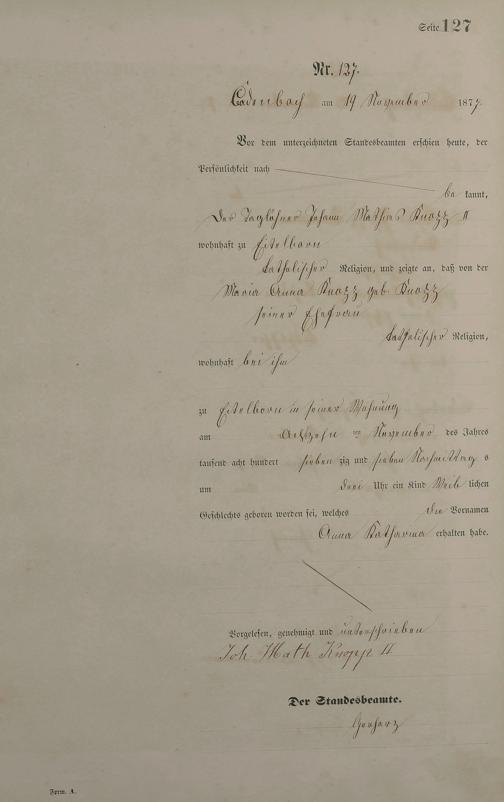 Seite 127
Nr. 127.
Cadenbach am 19 November 1877.
Vor dem unterzeichneten Standesbeamten erschien heute, der
Persönlichkeit nach
be kannt,
Der Taglöhner Johann Mathias Knopp II
wohnhaft zu Eitelborn
katholischer Religion, und zeigte an, daß von der
Maria Anna Knopp geb. Knopp
seiner Ehefrau
katholischer Religion,
wohnhaft bei ihm
zu Eitelborn in seiner Wohnung
am Achtzehn ten November des Jahres
tausend acht hundert sieben zig und sieben Nachmittag s
um drei Uhr ein Kind Weib lichen
Geschlechts geboren worden sei, welches die Vornamen
Anna Katharina erhalten habe.
Vorgelesen, genehmigt und unterschrieben
Joh Math Knopp II
Der Standesbeamte.
Form. A.